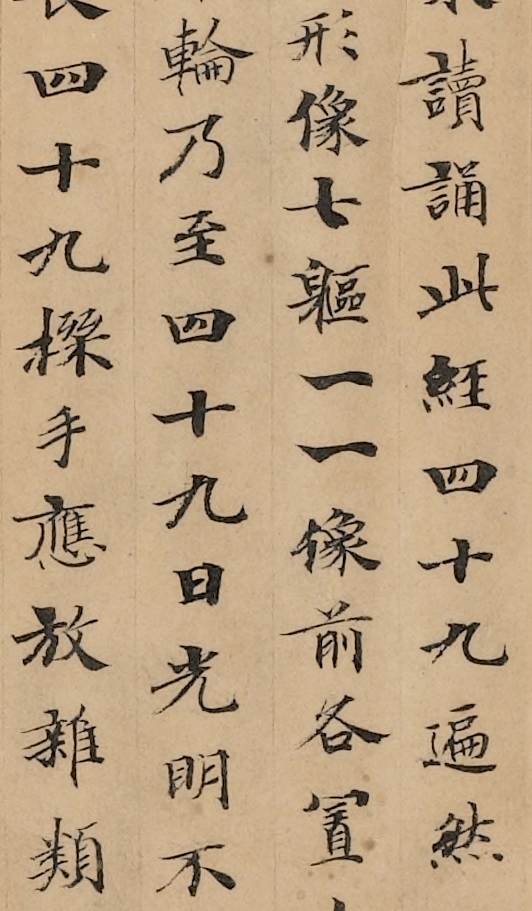 讀誦此經四十九遍然
形像七軀一一像前各置
輪乃至四十九日光明不
四十九搩手應放雜類